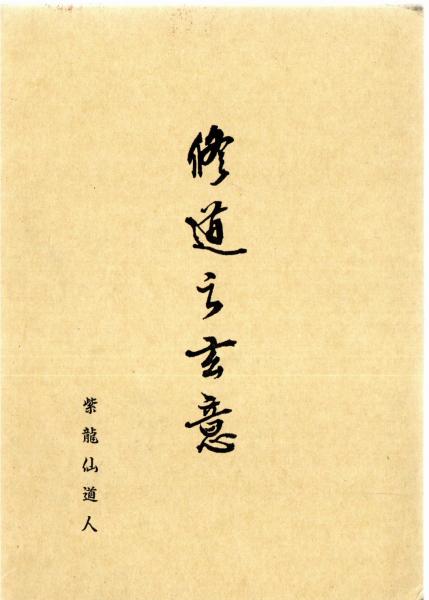 修道之玄意
紫龍仙道人